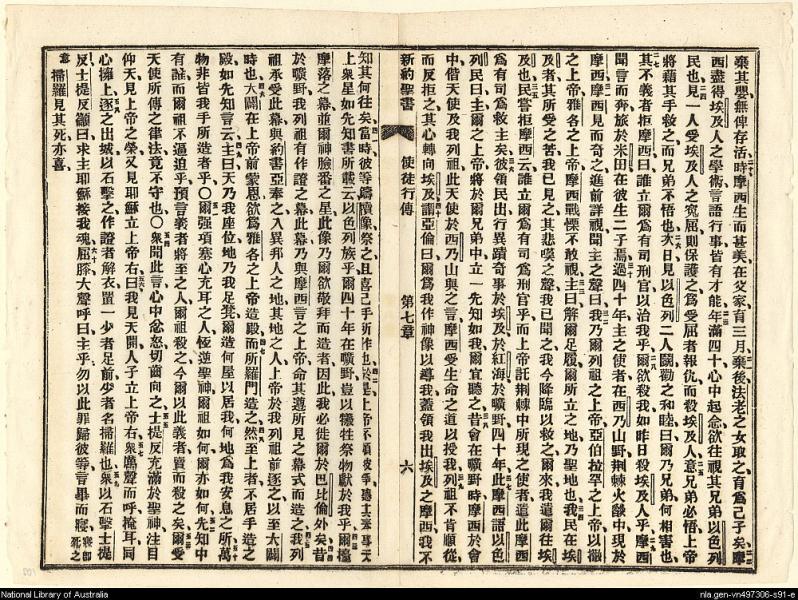 棄其嬰無俾存活時摩西生而甚美在父家育三月棄後法老之女取之育爲己子矣摩
西盡得埃及人之學術言語行事皆有才能年滿四十心中起念欲往視其兄弟以色列
民也見一人受埃及人之寃屈則保護之爲受屈者報仇而殺埃及人意兄弟必悟上帝
將藉其手救之而兄弟不悟也次日見以色列二人鬭勸之和睦曰爾乃兄弟何相害也
其不義者拒摩西曰誰立爾爲有司刑官以治我乎爾欲殺我如昨日殺埃及人乎摩西
聞言而奔旅於米田在彼生二子焉過四十年主之使者在西乃山野荆棘火燄中現於
摩西摩西見而奇之進前詳視聞主之聲曰我乃爾列祖之上帝亞伯拉罕之上帝以撒
之上帝雅各之上帝摩西戰慄不敢視主曰解爾足履爾所立之地乃聖地也我民在埃
及者其所受之苦我已見之其悲嘆之聲我已聞之我今降臨以救之爾來我遣爾往埃
及也民嘗拒摩西云誰立爾爲有司爲刑官乎而上帝託荆棘中所現之使者遣此摩西
爲有司爲救主矣彼領民出行異蹟奇事於埃及於紅海於曠野四十年此摩西語以色
列民曰主爾之上帝將於爾兄弟中立一先知如我爾宜聽之昔會在曠野時摩西於會
中偕天使及我列祖此天使於西乃山與之言摩西受生命之道以授我列祖不肯順從
而反拒之其心轉向埃及謂亞倫曰爾爲我作神像以導我蓋領我出埃及之摩西我不
新約聖書 使徒行傳 第七章 六
知其何往矣當時彼等鑄犢像祭之且喜己手所作也於是上帝不顧彼等聽其奉事天
上衆星如先知書所載云以色列族乎爾四十年在曠野豈以犧牲祭物獻於我乎爾擡
摩落之幕並爾神臉番之星此像乃爾欲敬拜而造者因此我必徙爾於巴比倫外矣昔
於曠野我列祖有作證之幕此幕乃與摩西言之上帝命其遵所見之幕式而造之我列
祖承受此幕與約書亞奉之入異邦人之地其地之人上帝於我列祖前逐之以至大闢
時也大闢在上帝前蒙恩欲爲雅各之上帝造殿而所羅門造之然至上者不居手造之
殿如先知言云主曰天乃我座位地乃我足凳爾造何屋以居我何地爲我安息之所萬
物非皆我手所造者乎〇爾强項塞心充耳之人恆逆聖神爾祖如何爾亦如何先知中
有誰而爾祖不逼迫乎預言義者將至之人爾祖殺之今爾以此義者賣而殺之矣爾受
天使所傳之律法竟不守也〇衆聞此言心中忿怒切齒向之士提反充滿於聖神注目
仰天見上帝之榮又見耶穌立上帝右曰我見天開人子立上帝右衆厲聲而呼掩耳同
心擁上逐之出城以石擊之作證者解衣置一少者足前少者名掃羅也衆以石擊士提
反士提反籲曰求主耶穌接我魂屈膝大聲呼曰主乎勿以此罪歸彼等言畢而寢寢卽死之
意掃羅見其死亦喜
National Library of Australia
nla.gen-vn497306-s91-e